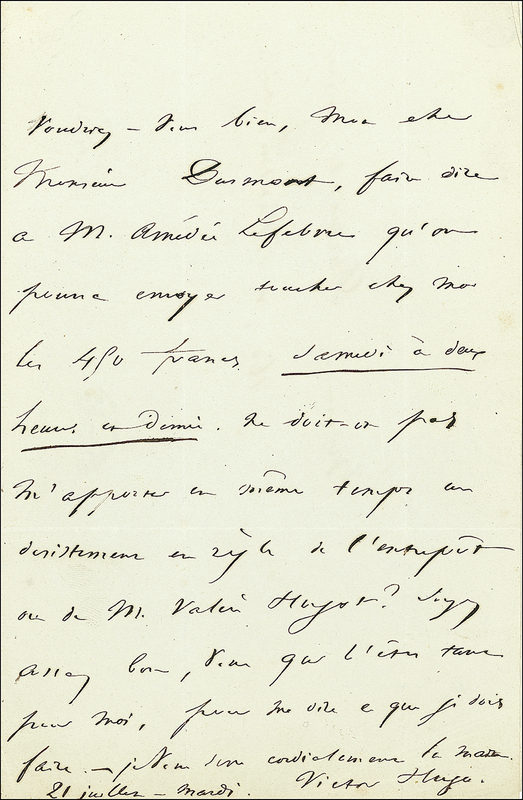 Voudriez-vous bien, mon cher
Monsieur Dumont, faire dire
à M. Amédée Lefebvre qu'on
pourra envoyer toucher chez moi
les 450 francs samedi à deux
heures et demie. Ne doit-on pas
m'apporter en même temps un
désistement en règle de l'entrepôt
ou de M. Valéri Hugot? Soyez
assez bon, vous qui l'êtes tant
pour moi, pour me dire ce que je dois
faire. – je vous serre cordialement la main.
Victor Hugo.
21 juillet – mardi.